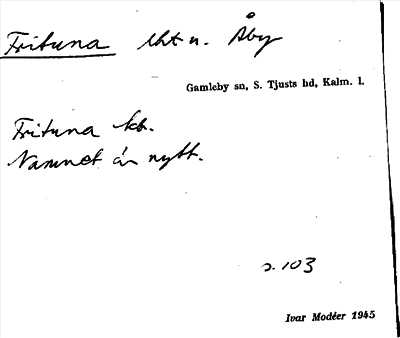 Frituna lht u. Åby
Gamleby sn, S. Tjusts hd, Kalm. l.
Frituna kb.
Namnet är nytt.
s. 103
Ivar Modéer 1945